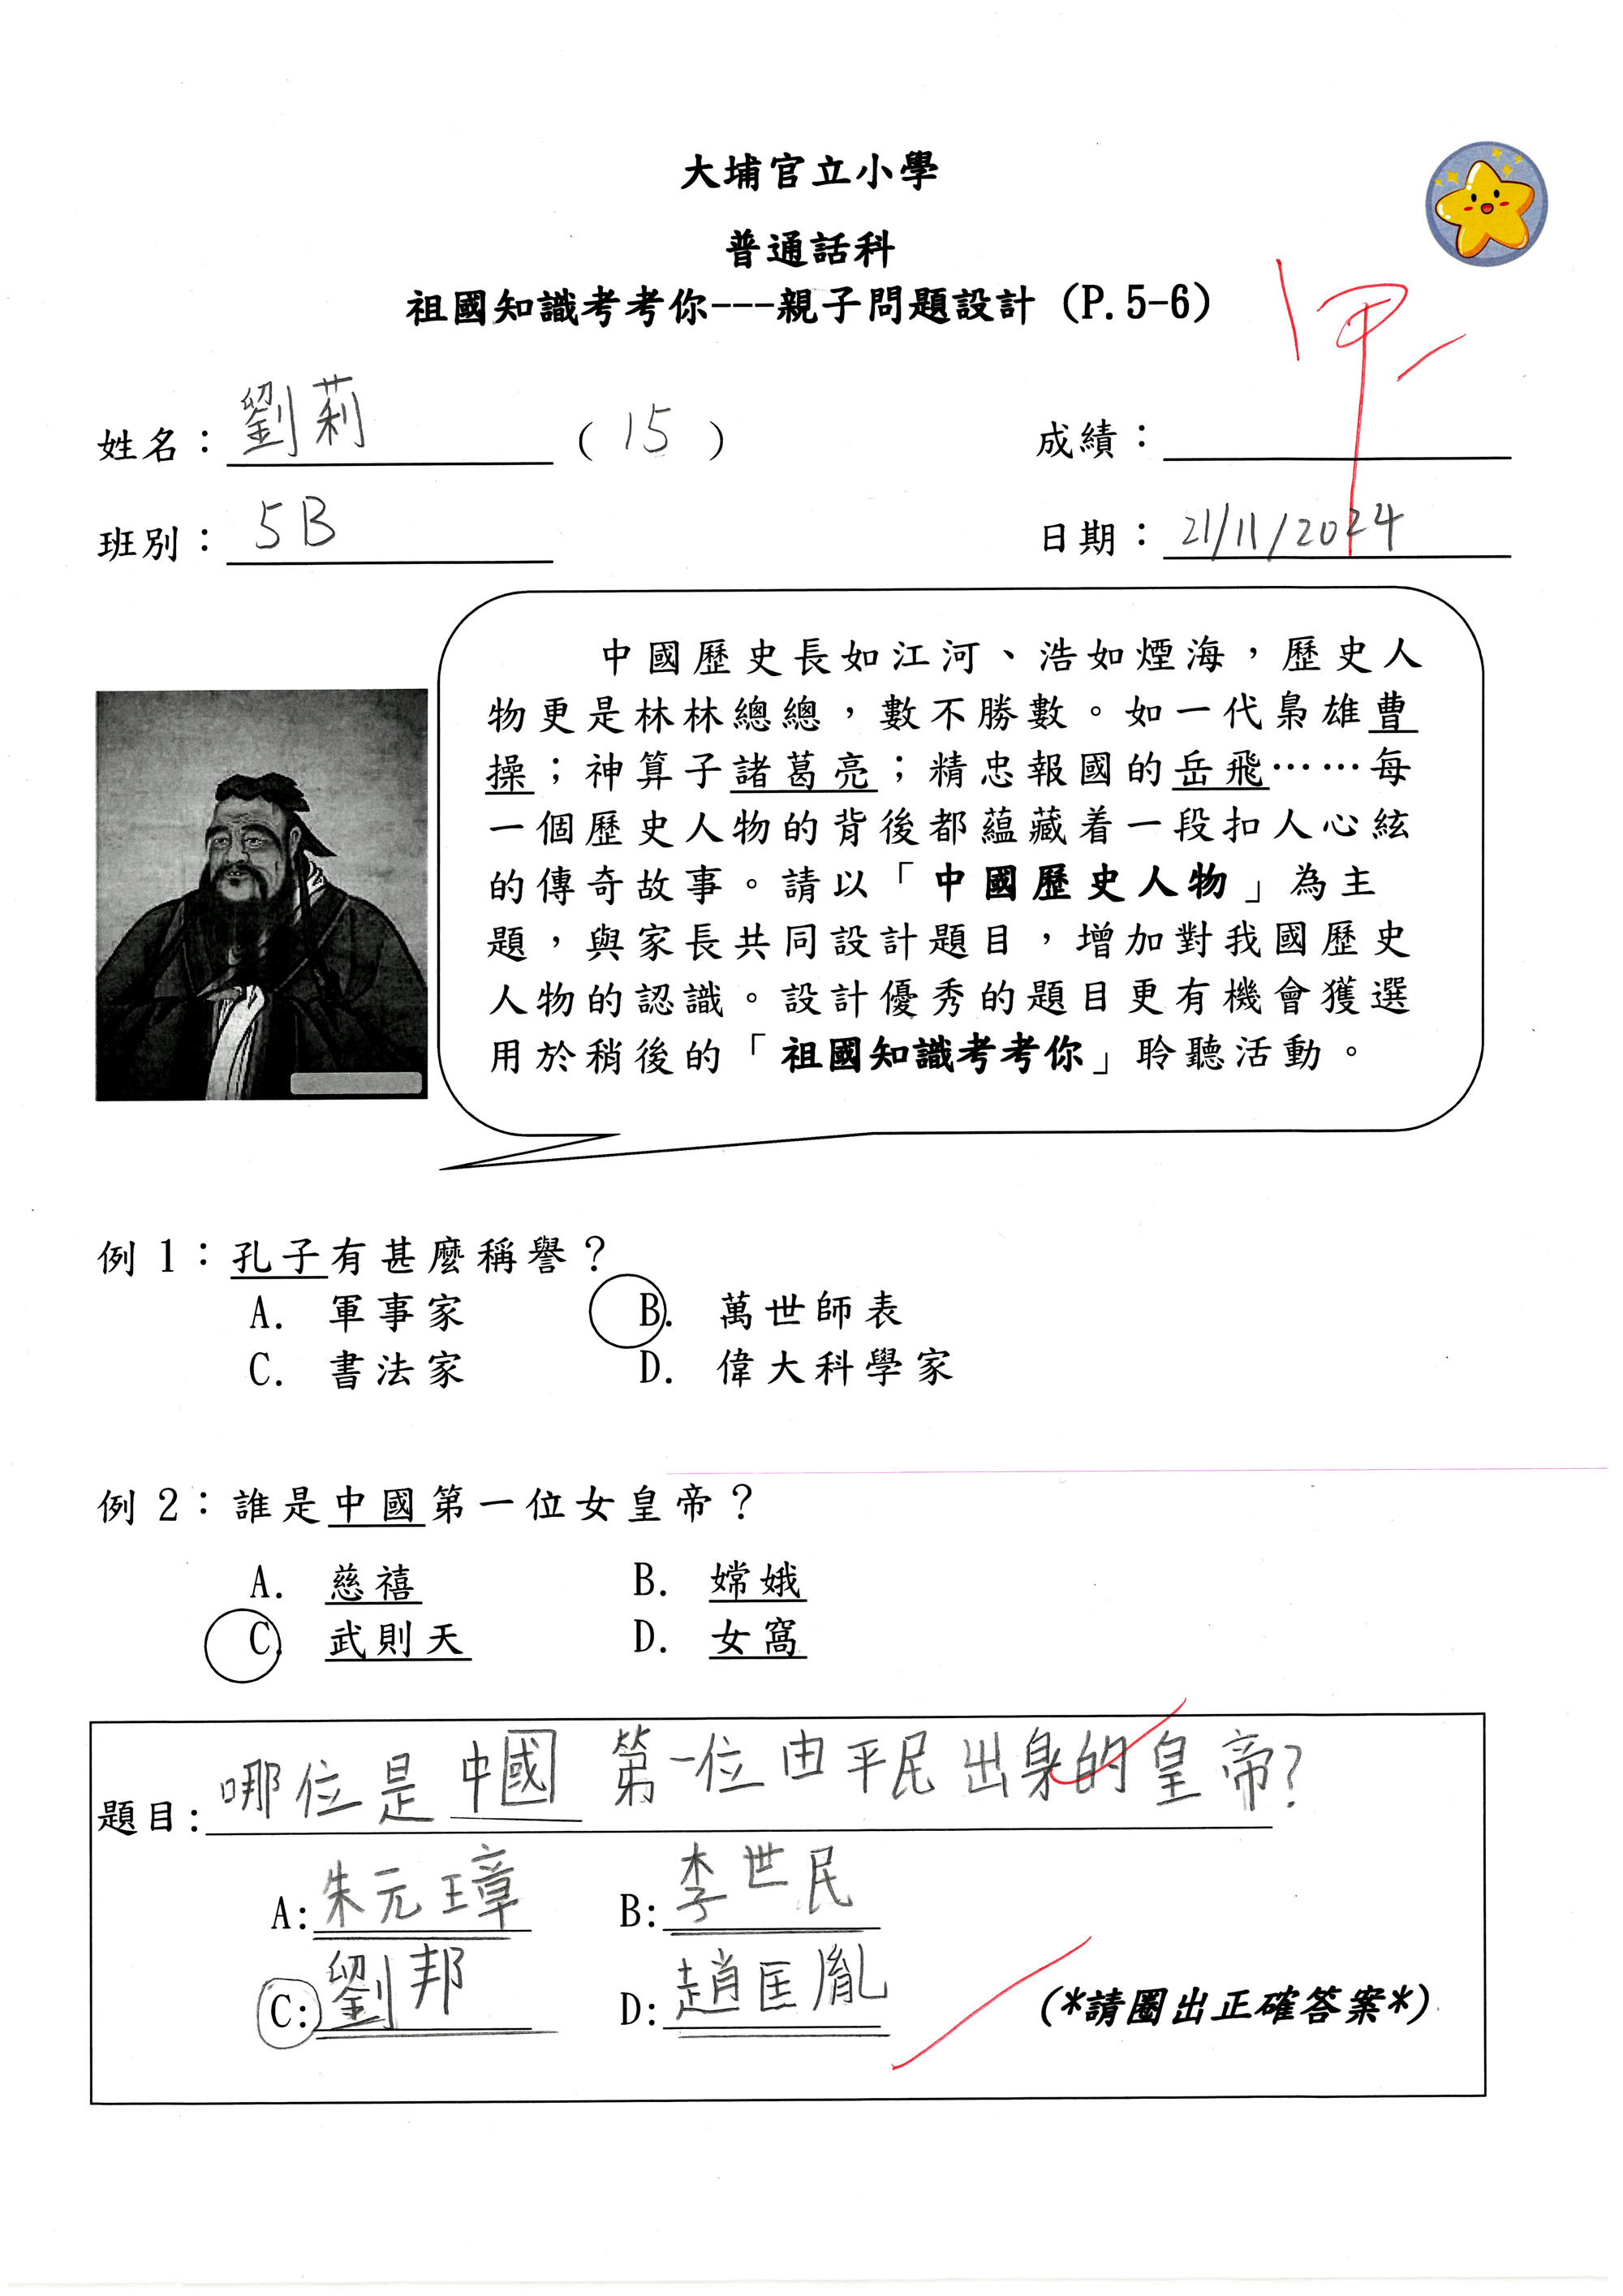 大埔官立小學
普通話科
祖國知識考考你---親子問題設計 (P.5-6)
姓名：劉莉 (15) 成績：甲
班別：5B 日期：21/11/2024
中國歷史長如江河、浩如煙海，歷史人
物更是林林總總，數不勝數。如一代梟雄曹
操；神算子諸葛亮；精忠報國的岳飛……每
一個歷史人物的背後都蘊藏着一段扣人心絃
的傳奇故事。請以「中國歷史人物」為主
題，與家長共同設計題目，增加對我國歷史
人物的認識。設計優秀的題目更有機會獲選
用於稍後的「祖國知識考考你」聆聽活動。
例 1：孔子有甚麼稱譽？
A. 軍事家 B. 萬世師表
C. 書法家 D. 偉大科學家
例 2：誰是中國第一位女皇帝？
A. 慈禧 B. 嫦娥
C. 武則天 D. 女窩
題目:哪位是中國第一位由平民出身的皇帝?
A:朱元璋 B:李世民
C:劉邦 D:趙匡胤 (*請圈出正確答案*)